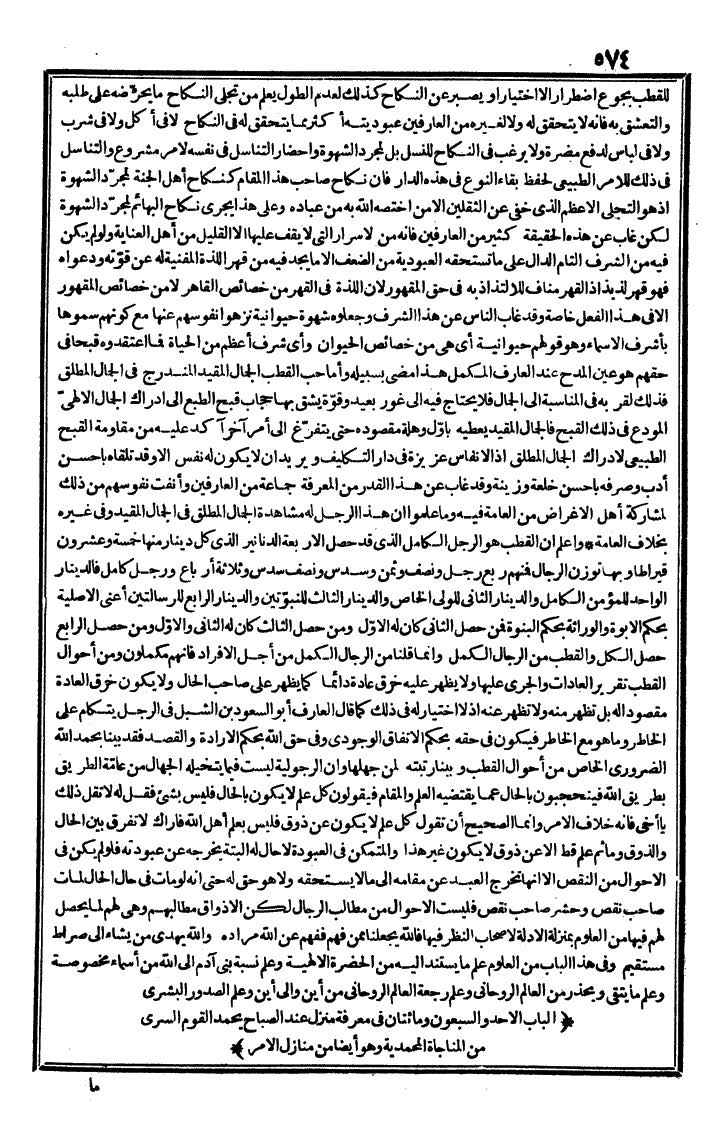 ٥٧٤
للقطب بجوع اضطرار لا اختيار او يصبر عن النكاح كذلك لعدم الطول يعلم من تجلى النكاح ما يحرّضه على طلبه
والتعشق به فانه لا يتحقق له ولا لغيره من العارفين عبوديته أكثر مما يتحقق له فى النكاح لا فى أكل ولا فى شرب
ولا فى لباس لدفع مضرة ولا يرغب فى النكاح للنسل بل لمجرد الشهوة واحضار التناسل فى نفسه لامر مشروع والتناسل
فى ذلك للامر الطبيعى لحفظ بقاء النوع فى هذه الدار فان نكاح صاحب هذا المقام كنكاح أهل الجنة لمجرّد الشهوة
اذ هو التجلى الاعظم الذى خفى عن الثقلين الا من اختصه الله به من عباده وعلى هذا يجرى نكاح البهائم لمجرّد الشهوة
لكن غاب عن هذه الحقيقة كثير من العارفين فانه من الاسرار التى لا يقف عليها الا القليل من أهل العناية ولو لم يكن
فيه من الشرف التام الدال على ما تستحقه العبودية من الضعف الا ما يجد فيه من قهر اللذة المفنية له عن قوّته ودعواه
فهو قهر لذيذ اذ القهر مناف للالتذاذ به فى حق المقهور لان اللذة فى القهر من خصائص القاهر لا من خصائص المقهور
الا فى هذا الفعل خاصة وقد غاب الناس عن هذا الشرف وجعلوه شهوة حيوانية نزهوا نفوسهم عنها مع كونهم سموها
بأشرف الاسماء وهو قولهم حيوانية أى هى من خصائص الحيوان وأى شرف أعظم من الحياة فما اعتقدوه قبحا فى
حقهم هو عين المدح عند العارف المكمل هذا مضى بسبيله وأما حب القطب الجمال المقيد المندرج فى الجمال المطلق
فذلك لقربه فى المناسبة الى الجمال فلا يحتاج فيه الى غور بعيد وقوّة يشق بها حجاب قبح الطبع الى ادراك الجمال الالهىّ
المودع فى ذلك القبح فالجمال المقيد يعطيه باوّل وهلة مقصوده حتى يتفرّغ الى أمر آخر آكد عليه من مقاومة القبح
الطبيعى لادراك الجمال المطلق اذ الانفاس عزيزة فى دار التكليف ويريد ان لا يكون له نفس الا وقد تلقاه باحسن
أدب وصرفه باحسن خلعة وزينة وقد غاب عن هذا القدر من المعرفة جماعة من العارفين وأنفت نفوسهم من ذلك
لمشاركة أهل الاغراض من العامة فيه وما علموا ان هذا الرجل له مشاهدة الجمال المطلق فى الجمال المقيد وفى غيره
بخلاف العامة * واعلم ان القطب هو الرجل الكامل الذى قد حصل الاربعة الدنانير الذى كل دينار منها خمسة وعشرون
قيراطا وبها توزن الرجال فمنهم ربع رجل ونصف وثمن وسدس ونصف سدس وثلاثة أرباع ورجل كامل فالدينار
الواحد للمؤمن الكامل والدينار الثانى للولى الخاص والدينار الثالث للنبوّتين والدينار الرابع للرسالتين أعنى الاصلية
بحكم الابوة والوراثة بحكم البنوة فمن حصل الثانى كان له الاوّل ومن حصل الثالث كان له الثانى والاوّل ومن حصل الرابع
حصل الكل والقطب من الرجال الكمل وانما قلنا من الرجال الكمل من أجل الافراد فانهم مكملون ومن أحوال
القطب تقرير العادات والجرى عليها ولا يظهر عليه خرق عادة دائما كما يظهر على صاحب الحال ولا يكون خرق العادة
مقصودا له بل تظهر منه ولا تظهر عنه اذ لا اختيار له فى ذلك كما قال العارف أبو السعود بن الشبل فى الرجل يتكلم على
الخاطر وما هو مع الخاطر فيكون فى حقه بحكم الاتفاق الوجودى وفى حق الله بحكم الارادة والقصد فقد بينا بحمد الله
الضرورى الخاص من أحوال القطب وبينا رتبته لمن جهلها وان الرجولية ليست فيما يتخيله الجهال من عامّة الطريق
بطريق الله فينحجبون بالحال عما يقتضيه العلم والمقام فيقولون كل علم لا يكون بالحال فليس بشئ فقل له لا تقل ذلك
يا أخى فانه خلاف الامر وانما الصحيح أن تقول كل علم لا يكون عن ذوق فليس بعلم أهل الله فاراك لا تفرق بين الحال
والذوق وما ثم علم قط الا عن ذوق لا يكون غير هذا والمتمكن فى العبودة لا حال له البتة يخرجه عن عبودته فلو لم يكن فى
الاحوال من النقص الا انها تخرج العبد عن مقامه الى ما لا يستحقه ولا هو حق له حتى انه لو مات فى حال الحال لمات
صاحب نقص وحشر صاحب نقص فليست الاحوال من مطالب الرجال لكن الاذواق مطالبهم وهى لهم لما يحصل
لهم فيها من العلوم بمنزلة الادلة لاصحاب النظر فيها فالله يجعلنا ممن فهم ففهم عن الله مراده والله يهدى من يشاء الى صراط
مستقيم وفى هذا الباب من العلوم علم ما يستند اليه من الحضرة الالهية وعلم نسبة بنى آدم الى الله من أسماء مخصوصة
وعلم ما يتقى ويحذر من العالم الروحانى وعلم رجعة العالم الروحانى من أين والى أين وعلم الصدور البشرى
﴿ الباب الاحد والسبعون ومائتان فى معرفة منزل عند الصباح يحمد القوم السرى
من المناجاة المحمدية وهو أيضا من منازل الامر ﴾
ما